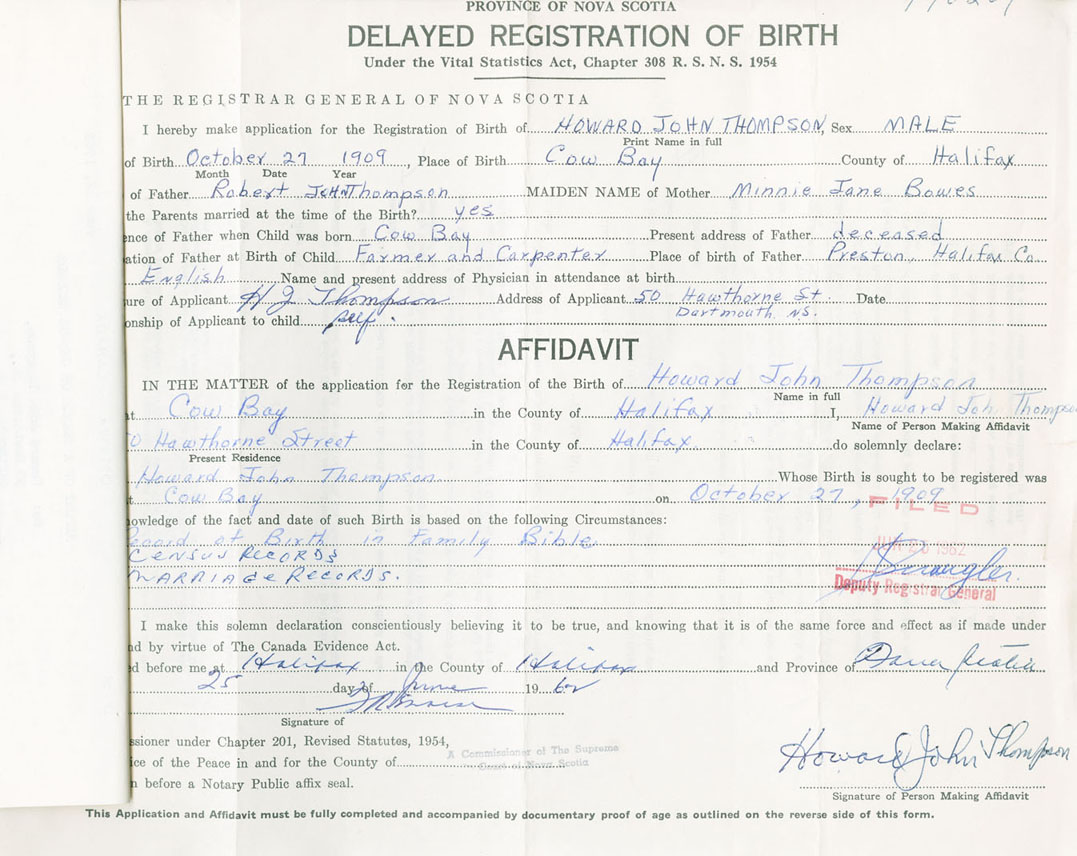 PROVINCE OF NOVA SCOTIA
DELAYED REGISTRATION OF BIRTH
Under the Vital Statistics Act, Chapter 308 R. S. N. S. 1954
THE REGISTRAR GENERAL OF NOVA SCOTIA
I hereby make application for the Registration of Birth of HOWARD JOHN THOMPSON, Sex MALE
Print Name in full
of Birth October 27 1909, Place of Birth Cow Bay County of Halifax
Month Date Year
of Father Robert JOHN Thompson MAIDEN NAME of Mother Minnie Jane Bowes
the Parents married at the time of the Birth? yes
nce of Father when Child was born Cow Bay Present address of Father deceased
ation of Father at Birth of Child Farmer and Carpenter Place of birth of Father Preston, Halifax Co.
English Name and present address of Physician in attendance at birth
ure of Applicant H J Thompson Address of Applicant 50 Hawthorne St. Date
Dartmouth N.S.
onship of Applicant to child self.
AFFIDAVIT
IN THE MATTER of the application for the Registration of the Birth of Howard John Thompson
Name in full
t Cow Bay in the County of Halifax I, Howard John Thompso
Name of Person Making Affidavit
0 Hawthorne Street in the County of Halifax do solemnly declare:
Present Residence
Howard John Thompson Whose Birth is sought to be registered was
t Cow Bay on October 27, 1909
FILED
owledge of the fact and date of such Birth is based on the following Circumstances:
ecord of Birth in Family Bible
CENSUS RECORDS
MARRIAGE RECORDS.
JUN 26 1962
Deputy Registrar General
I make this solemn declaration conscientiously believing it to be true, and knowing that it is of the same force and effect as if made under
nd by virtue of The Canada Evidence Act.
d before me at Halifax in the County of Halifax and Province of Nova Scotia
25 day of June 1962
Signature of
ssioner under Chapter 201, Revised Statutes, 1954,
A Commissioner of The Supreme
Court of Nova Scotia
ice of the Peace in and for the County of
n before a Notary Public affix seal.
Howard John Thompson
Signature of Person Making Affidavit
This Application and Affidavit must be fully completed and accompanied by documentary proof of age as outlined on the reverse side of this form.